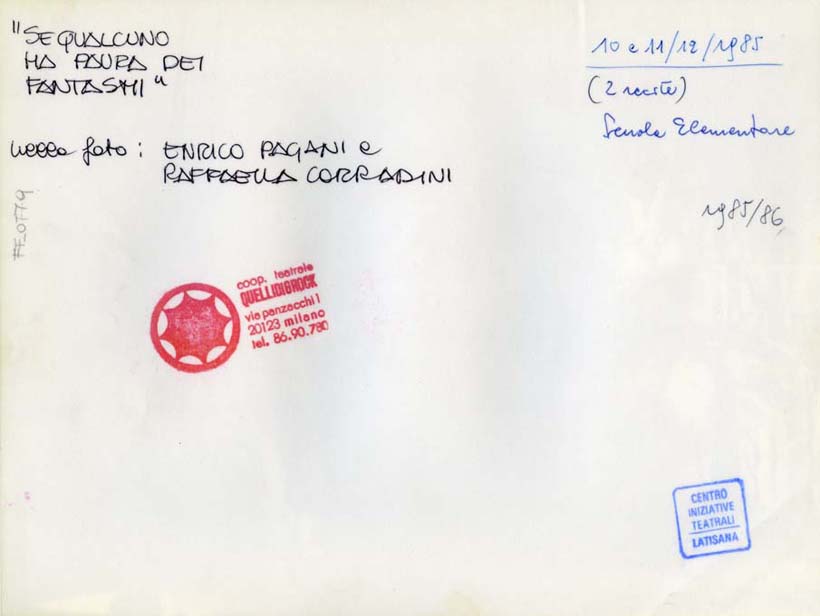 "SE QUALCUNO
HA PAURA DEI
FANTASMI"
nella foto: ENRICO PAGANI e
RAFFAELLA CORRADINI
10 e 11/12/1985
(2 recite)
Scuola Elementare
1985/86
FF_0779
coop. teatrale
QUELLIDIGROCK
via panzacchi 1
20123 milano
tel. 86.90.780
CENTRO
INIZIATIVE
TEATRALI
LATISANA